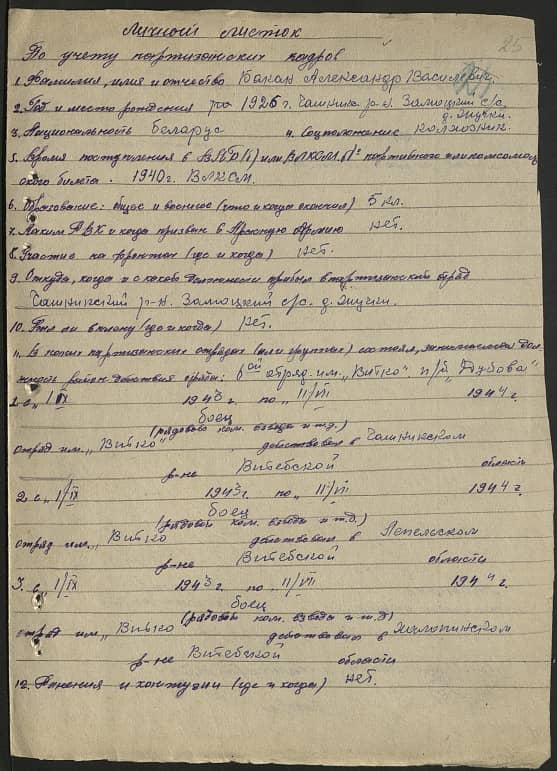 Личной листок
25
По учету партизанских кадров
1. Фамилия, имя и отчество Бакан Александр Василевич
2. Год и место рождения 1926 г. Чашник. р-н. Замоцкий с/с,
д. Жучки.
3. Национальность белорус 4. Соцположение колхозник.
5. Время поступления в ВКП(б) или ВЛКСМ, № партийного или комсомоль
ского билета. 1940 г. ВЛКСМ.
6. Образование: общее и военное (что и когда окончил) 5 кл.
7. Каким РВК и когда призван в Красную Армию нет.
8. Участие на фронтах (где и когда) нет.
9. Откуда, когда и с какой должности прибыл в партизанский отряд
Чашникский р-н. Замоцкий с/с. д. Жучки.
10. Был ли в плену (где и когда) нет.
11. В каких партизанских отрядах (или группах) состоял, занимаемая дол
жность район действия отряда: 1ой отряд. им. „Витко“. п/б „Дубова“
1. с „1/IX 1943 г. по „11/VII 1944 г.
боец
(рядовой ком. взвода и т.д.)
отряд им. „Витко“ действовал в Чашникском
р-не Витебской область
2. с „1/IX 1943 г. по „11/VII 1944 г.
боец
(рядовой ком. взвода и т.д.)
отряд им. „Витко действовал в Лепельском
р-не Витебской области
3. с „1/IX 1943 г. по „11/VII 1944 г.
боец
(рядовой ком. взвода и т.д)
отряд им. „Витко действовал в
р-не Витебской области
12. Ранения и контузии (где и когда) нет.